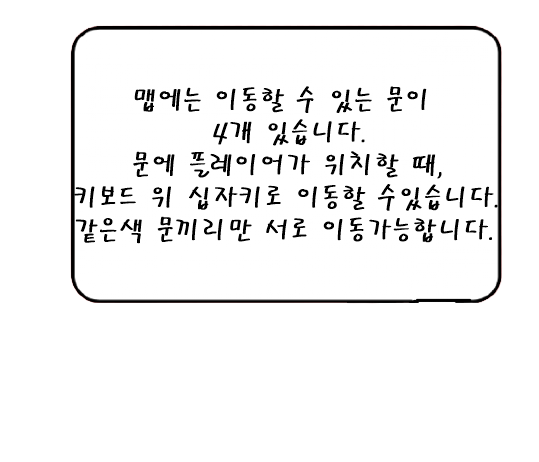 맵에는 이동할 수 있는 문이
4개 있습니다.
문에 플레이어가 위치할 때,
키보드 위 십자키로 이동할 수있습니다.
같은색 문끼리만 서로 이동가능합니다.